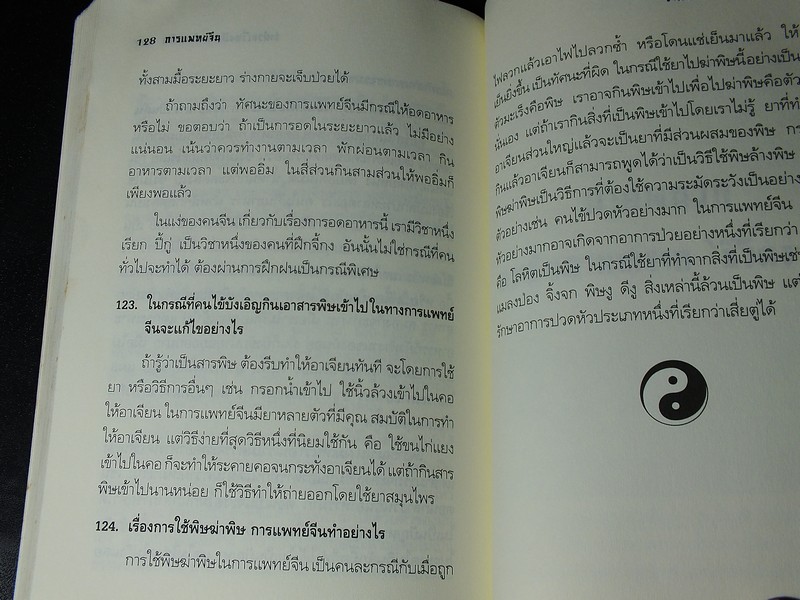 128 การแพทย์จีน
ทั้งสามมื้อระยะยาว ร่างกายจะเจ็บป่วยได้
ถ้าถามถึงว่า ทัศนะของการแพทย์จีนมีกรณีให้อดอาหาร
หรือไม่ ขอตอบว่า ถ้าเป็นการอดในระยะยาวแล้ว ไม่มีอย่าง
แน่นอน เน้นว่าควรทำงานตามเวลา พักผ่อนตามเวลา กิน
อาหารตามเวลา แต่พออิ่ม ในสี่ส่วนกินสามส่วนให้พออิ่มก็
เพียงพอแล้ว
ในแง่ของคนจีน เกี่ยวกับเรื่องการอดอาหารนี้ เรามีวิชาหนึ่ง
เรียก ปี้กู่ เป็นวิชาหนึ่งของคนที่ฝึกจี้กง อันนั้นไม่ใช่กรณีที่คน
ทั่วไปจะทำได้ ต้องผ่านการฝึกฝนเป็นกรณีพิเศษ
123. ในกรณีที่คนไข้บังเอิญกินเอาสารพิษเข้าไป ในทางการแพทย์
จีนจะแก้ไขอย่างไร
ถ้ารู้ว่าเป็นสารพิษ ต้องรีบทำให้อาเจียนทันที จะโดยการใช้
ยา หรือวิธีการอื่นๆ เช่น กรอกน้ำเข้าไป ใช้นิ้วล้วงเข้าไปในคอ
ให้อาเจียน ในการแพทย์จีนมียาหลายตัวที่มีคุณ สมบัติในการทำ
ให้อาเจียน แต่วิธีง่ายที่สุดวิธีหนึ่งที่นิยมใช้กัน คือ ใช้ขนไก่แยง
เข้าไปในคอ ก็จะทำให้ระคายคอจนกระทั่งอาเจียนได้ แต่ถ้ากินสาร
พิษเข้าไปนานหน่อย ก็ใช้วิธีทำให้ถ่ายออกโดยใช้ยาสมุนไพร
124. เรื่องการใช้พิษฆ่าพิษ การแพทย์จีนทำอย่างไร
การใช้พิษฆ่าพิษในการแพทย์จีน เป็นคนละกรณีกับเมื่อถูก
ไฟลวกแล้วเอาไฟไปลวกซ้ำ หรือโดนแช่เย็นมาแล้ว ให้
เย็นยิ่งขึ้น เป็นทัศนะที่ผิด ในกรณีใช้ยาไปฆ่าพิษนี้อย่างเป็น
ตัวมะเร็งคือพิษ เราอาจกินพิษเข้าไปเพื่อไปฆ่าพิษคือตัว
นั่นเอง แต่ถ้าเรากินสิ่งที่เป็นพิษเข้าไปโดยเราไม่รู้ ยาที่ทำ
อาเจียนส่วนใหญ่แล้วจะเป็นยาที่มีส่วนผสมของพิษ
กินแล้วอาเจียนก็สามารถพูดได้ว่าเป็นวิธีใช้พิษล้างพิษ
พิษฆ่าพิษเป็นวิธีการที่ต้องใช้ความระมัดระวังเป็นอย่าง
ตัวอย่างเช่น คนไข้ปวดหัวอย่างมาก ในการแพทย์จีน
หัวอย่างมากอาจเกิดจากอาการป่วยอย่างหนึ่งที่เรียกว่า
คือ โลหิตเป็นพิษ ในกรณีใช้ยาที่ทำจากสิ่งที่เป็นพิษเช่
แมลงป่อง จิ้งจก พิษงู ดีงู สิ่งเหล่านี้ล้วนเป็นพิษ แต่
รักษาอาการปวดหัวประเภทหนึ่งที่เรียกว่าเสี่ยตู่ได้